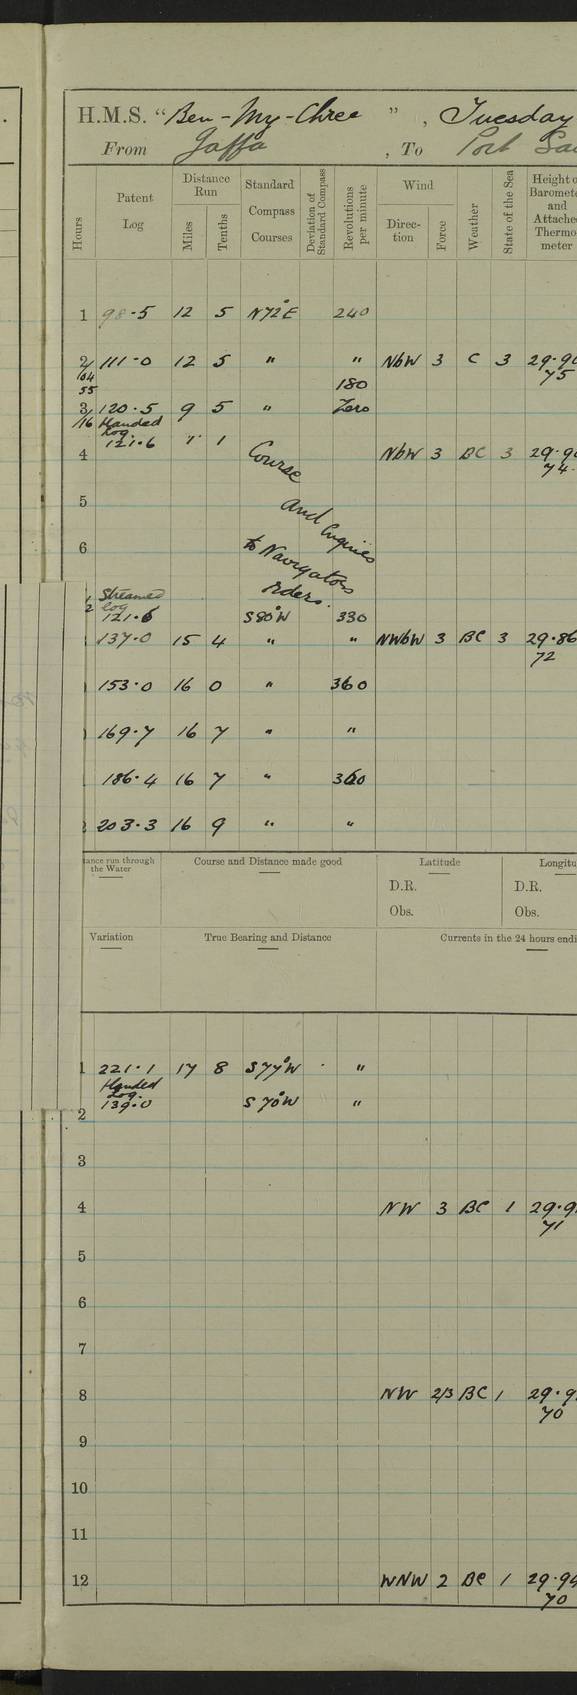 H.M.S. "Ben-My-Chree", Tuesday
From Jaffa, To Port
Hours
Patent Log
Distance Run
Miles
Tenths
Standard Compass Courses
Deviation of Standard Compass
Revolutions per minute
Wind
Direction
Force
Weather
State of the Sea
Height o
Baromete
and
Attache
Thermo-
meter
1 98.5 12 5 N72°E 240
2 111.0 12 5 " " NbW 3 C 3 29.9
75
180
3 120.5 9 5 " Zero
Handed
Log.
121.6 1 1
4 NbW 3 BC 3 29.9
74
Course
and Engines
to Navigators
orders.
5
6
Streamed
log
121.6 S80°W 330
137.0 15 4 " " NWbW 3 BC 3 29.86
72
153.0 16 0 " 360
169.7 16 7 " "
186.4 16 7 " 360
203.3 16 9 " "
tance run through
the Water
Course and Distance made good
Latitude
Longitu
D.R.
D.R.
Obs.
Obs.
Variation
True Bearing and Distance
Currents in the 24 hours endi
1 221.1 17 8 S77°W "
Handed
Log.
139.0 S70°W "
2
3
4 NW 3 BC 1 29.9
71
5
6
7
8 NW 2/3 BC 1 29.9
70
9
10
11
12 WNW 2 BC 1 29.94
70